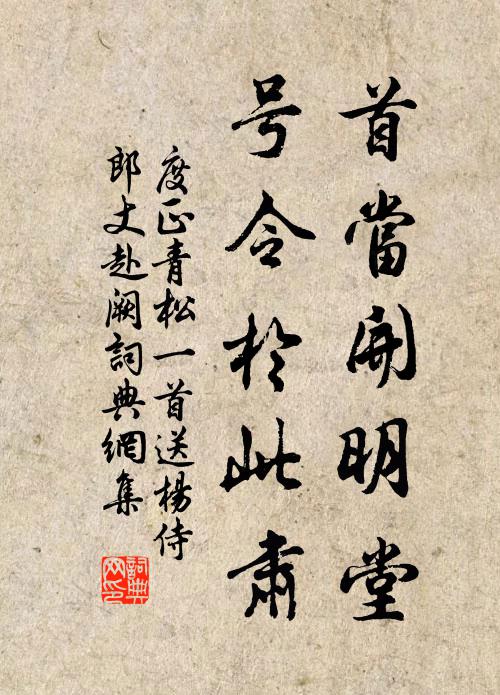 首當開明堂
号令於此肅
度正青松一首送楊侍
郎丈赴阙詞典網集
詞典
网印